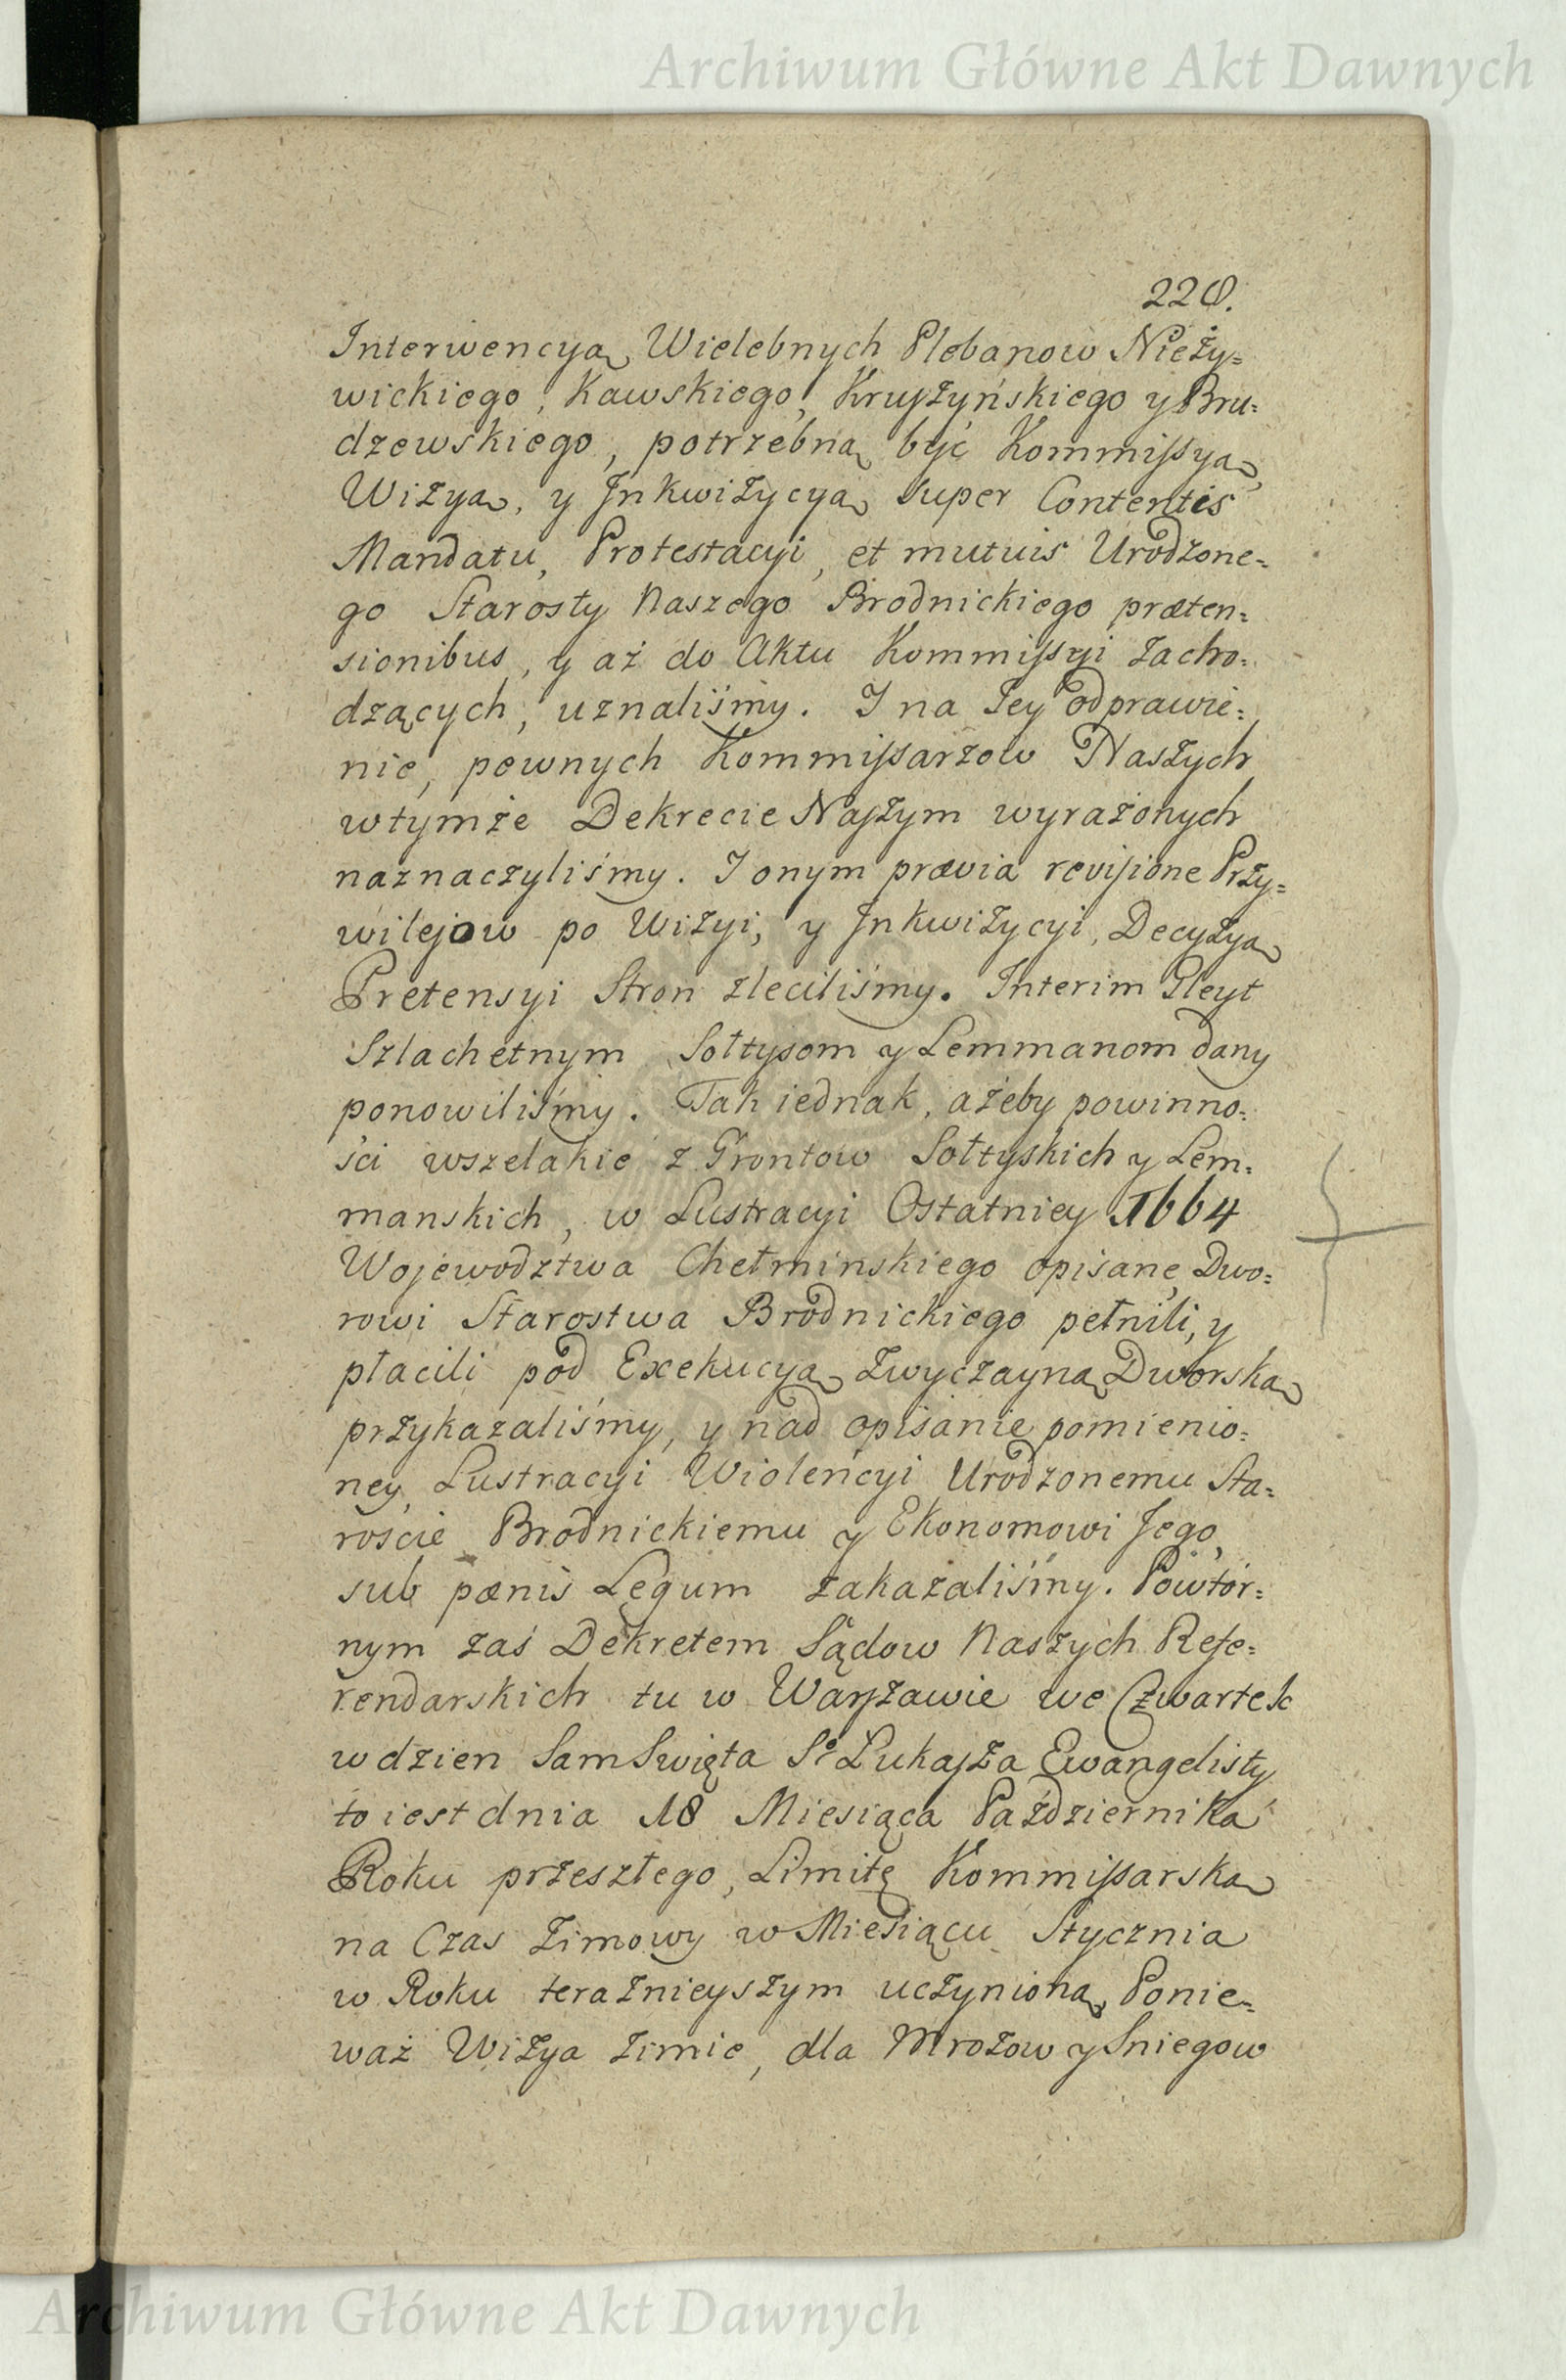 Archiwum Główne Akt Dawnych
220.
Interwencyą Wielebnych Plebanow Nieży=
wickiego, Kawskiego, Kruszyńskiego y Bru=
dzewskiego, potrzebną być Kommissyą,
Wizyą, y Inkwizycyą super Contentis
Mandatu, Protestacyi, et mutuis Urodzone=
go Starosty Naszego Brodnickiego præten=
sionibus, y aż do Aktu Kommissyi zacho=
dzących, uznaliśmy. I na Jey odprawie=
nie, pewnych Kommissarzow Naszych
w tymże Dekrecie Naszym wyrażonych
naznaczyliśmy. I onym prævia revisione Przy=
wilejow po Wizyi, y Inkwizycyi, Decyzyą
Pretensyi Stron zleciliśmy. Interim Gleyt
Szlachetnym Sołtysom y Lemmanom dany
ponowiliśmy. Tak iednak, ażeby powinno=
ści wszelakie z Grontow Sołtyskich y Lem=
manskich, w Lustracyi Ostatniey 1664
Wojewodztwa Chełminskiego opisane, Dwo=
rowi Starostwa Brodnickiego pełnili, y
płacili pod Exekucyą zwyczayną Dworską
przykazaliśmy, y nad opisanie pomienio=
ney Lustracyi Wiolencyi Urodzonemu Sta=
roście Brodnickiemu y Ekonomowi Jego,
sub pænis Legum zakazaliśmy. Powtór=
nym zaś Dekretem Sądow Naszych Refe=
rendarskich tu w Warszawie we Czwartek
w dzien Sam Swięta S° Lukasza Ewangelisty
to iest dnia 18 Miesiąca Października
Roku przeszłego, Limitę Kommissarską
na Czas Zimowy w Miesiącu Stycznia
w Roku teraznieyszym uczynioną, Ponie=
waż Wizya zimie, dla Mrozow y Sniegow
Archiwum Główne Akt Dawnych